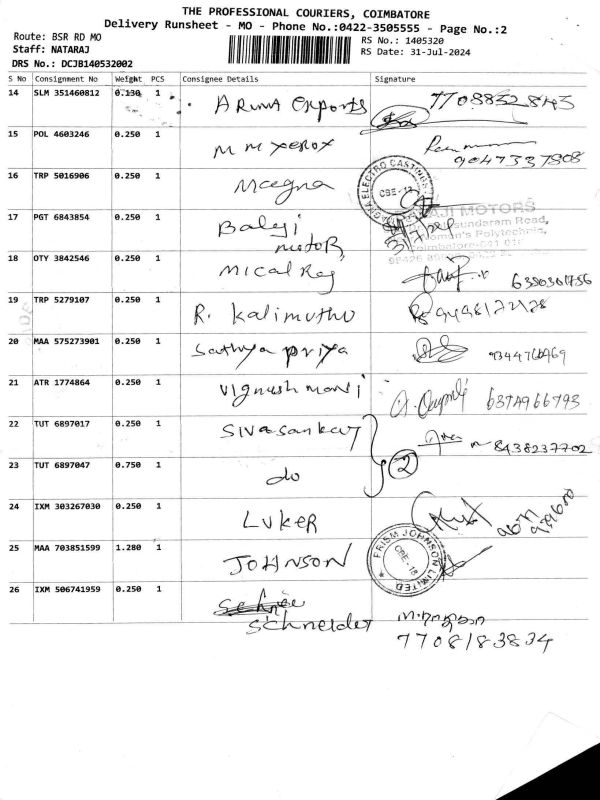 THE PROFESSIONAL COURIERS, COIMBATORE
Delivery Runsheet - MO - Phone No.:0422-3505555 - Page No.:2
Route: BSR RD MO
RS No.: 1405320
Staff: NATARAJ
RS Date: 31-Jul-2024
DRS No.: DCJB140532002
S No Consignment No Weight PCS Consignee Details Signature
14 SLM 351460812 0.130 1 ARUNA Exports 7708832843
15 POL 4603246 0.250 1 M M xerox 9047337808
16 TRP 5016906 0.250 1 Maegna
MAGNA ELECTRO CASTINGS
CBE-18
17 PGT 6843854 0.250 1 Balaji
motor
BALAJI MOTORS
Sundaram Road,
Woman's Polytechnic,
Coimbatore-641 01
18 OTY 3842546 0.250 1 Mical Raj
19 TRP 5279107 0.250 1 R. Kalimuthu
20 MAA 575273901 0.250 1 Sathya priya 9344766969
21 ATR 1774864 0.250 1 Vignush mani 6374966793
22 TUT 6897017 0.250 1 Sivasankar 8438237702
23 TUT 6897047 0.750 1 do 2
24 IXM 303267030 0.250 1 LUKER
25 MAA 703851599 1.280 1 JOHNSON
PRISM JOHNSON LIMITED
CBE-18
26 IXM 506741959 0.250 1
Schneider
7708183834